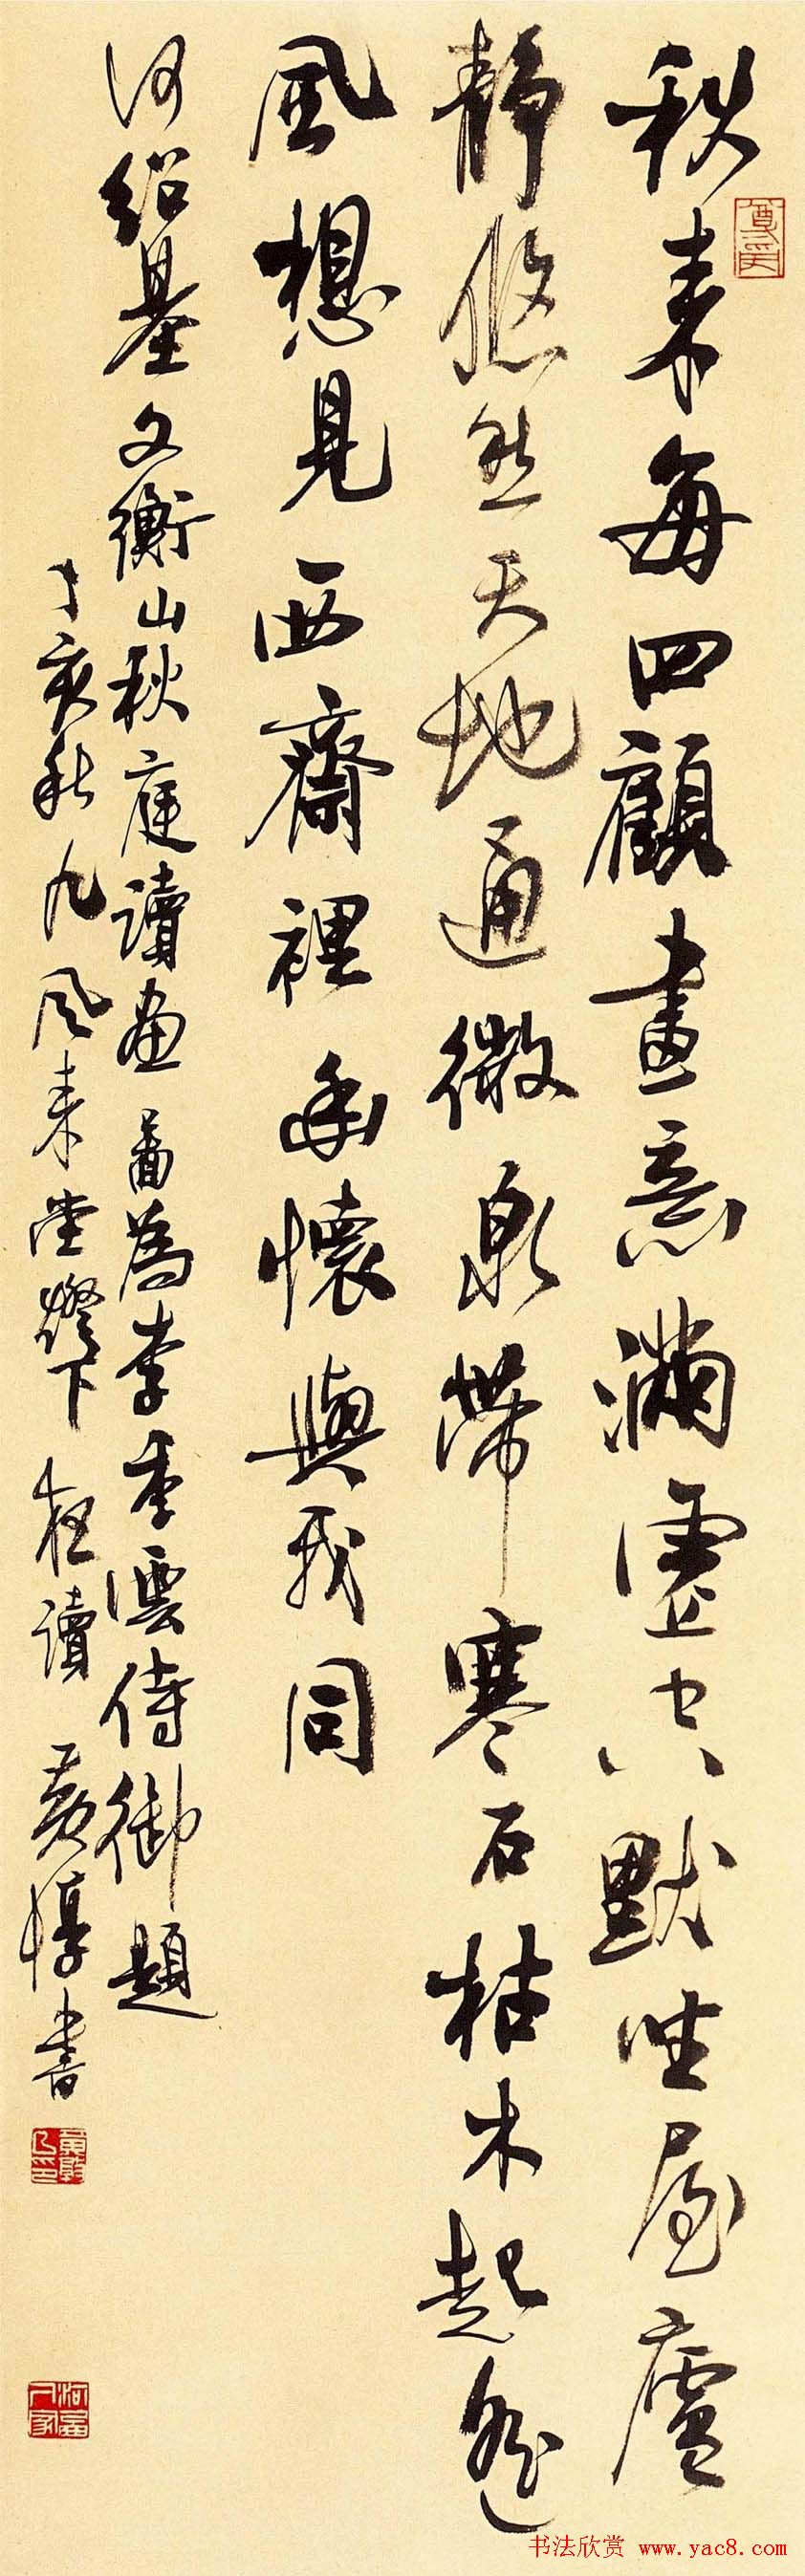 秋來每四顧畫意滿虛空默坐屋廬
靜悠然天地通微泉帶寒石枯木起遙
風想見西齋裡幽懷與我同
何紹基文衡山秋庭讀畫啚為李季雲侍御題
丁亥秋九風來堂燈下夜讀黃惇書
黃惇之印
书法欣赏 www.yac8.com